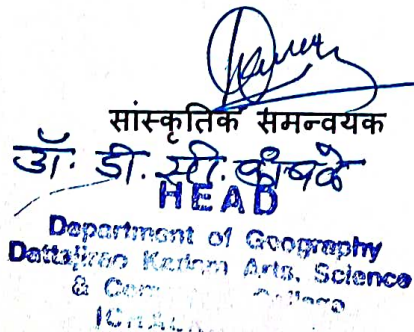 सांस्कृतिक समन्वयक
डॉ. डी. सी. कांबळे
HEAD
Department of Geography
Dattajirao Kadam Arts, Science
& Com College